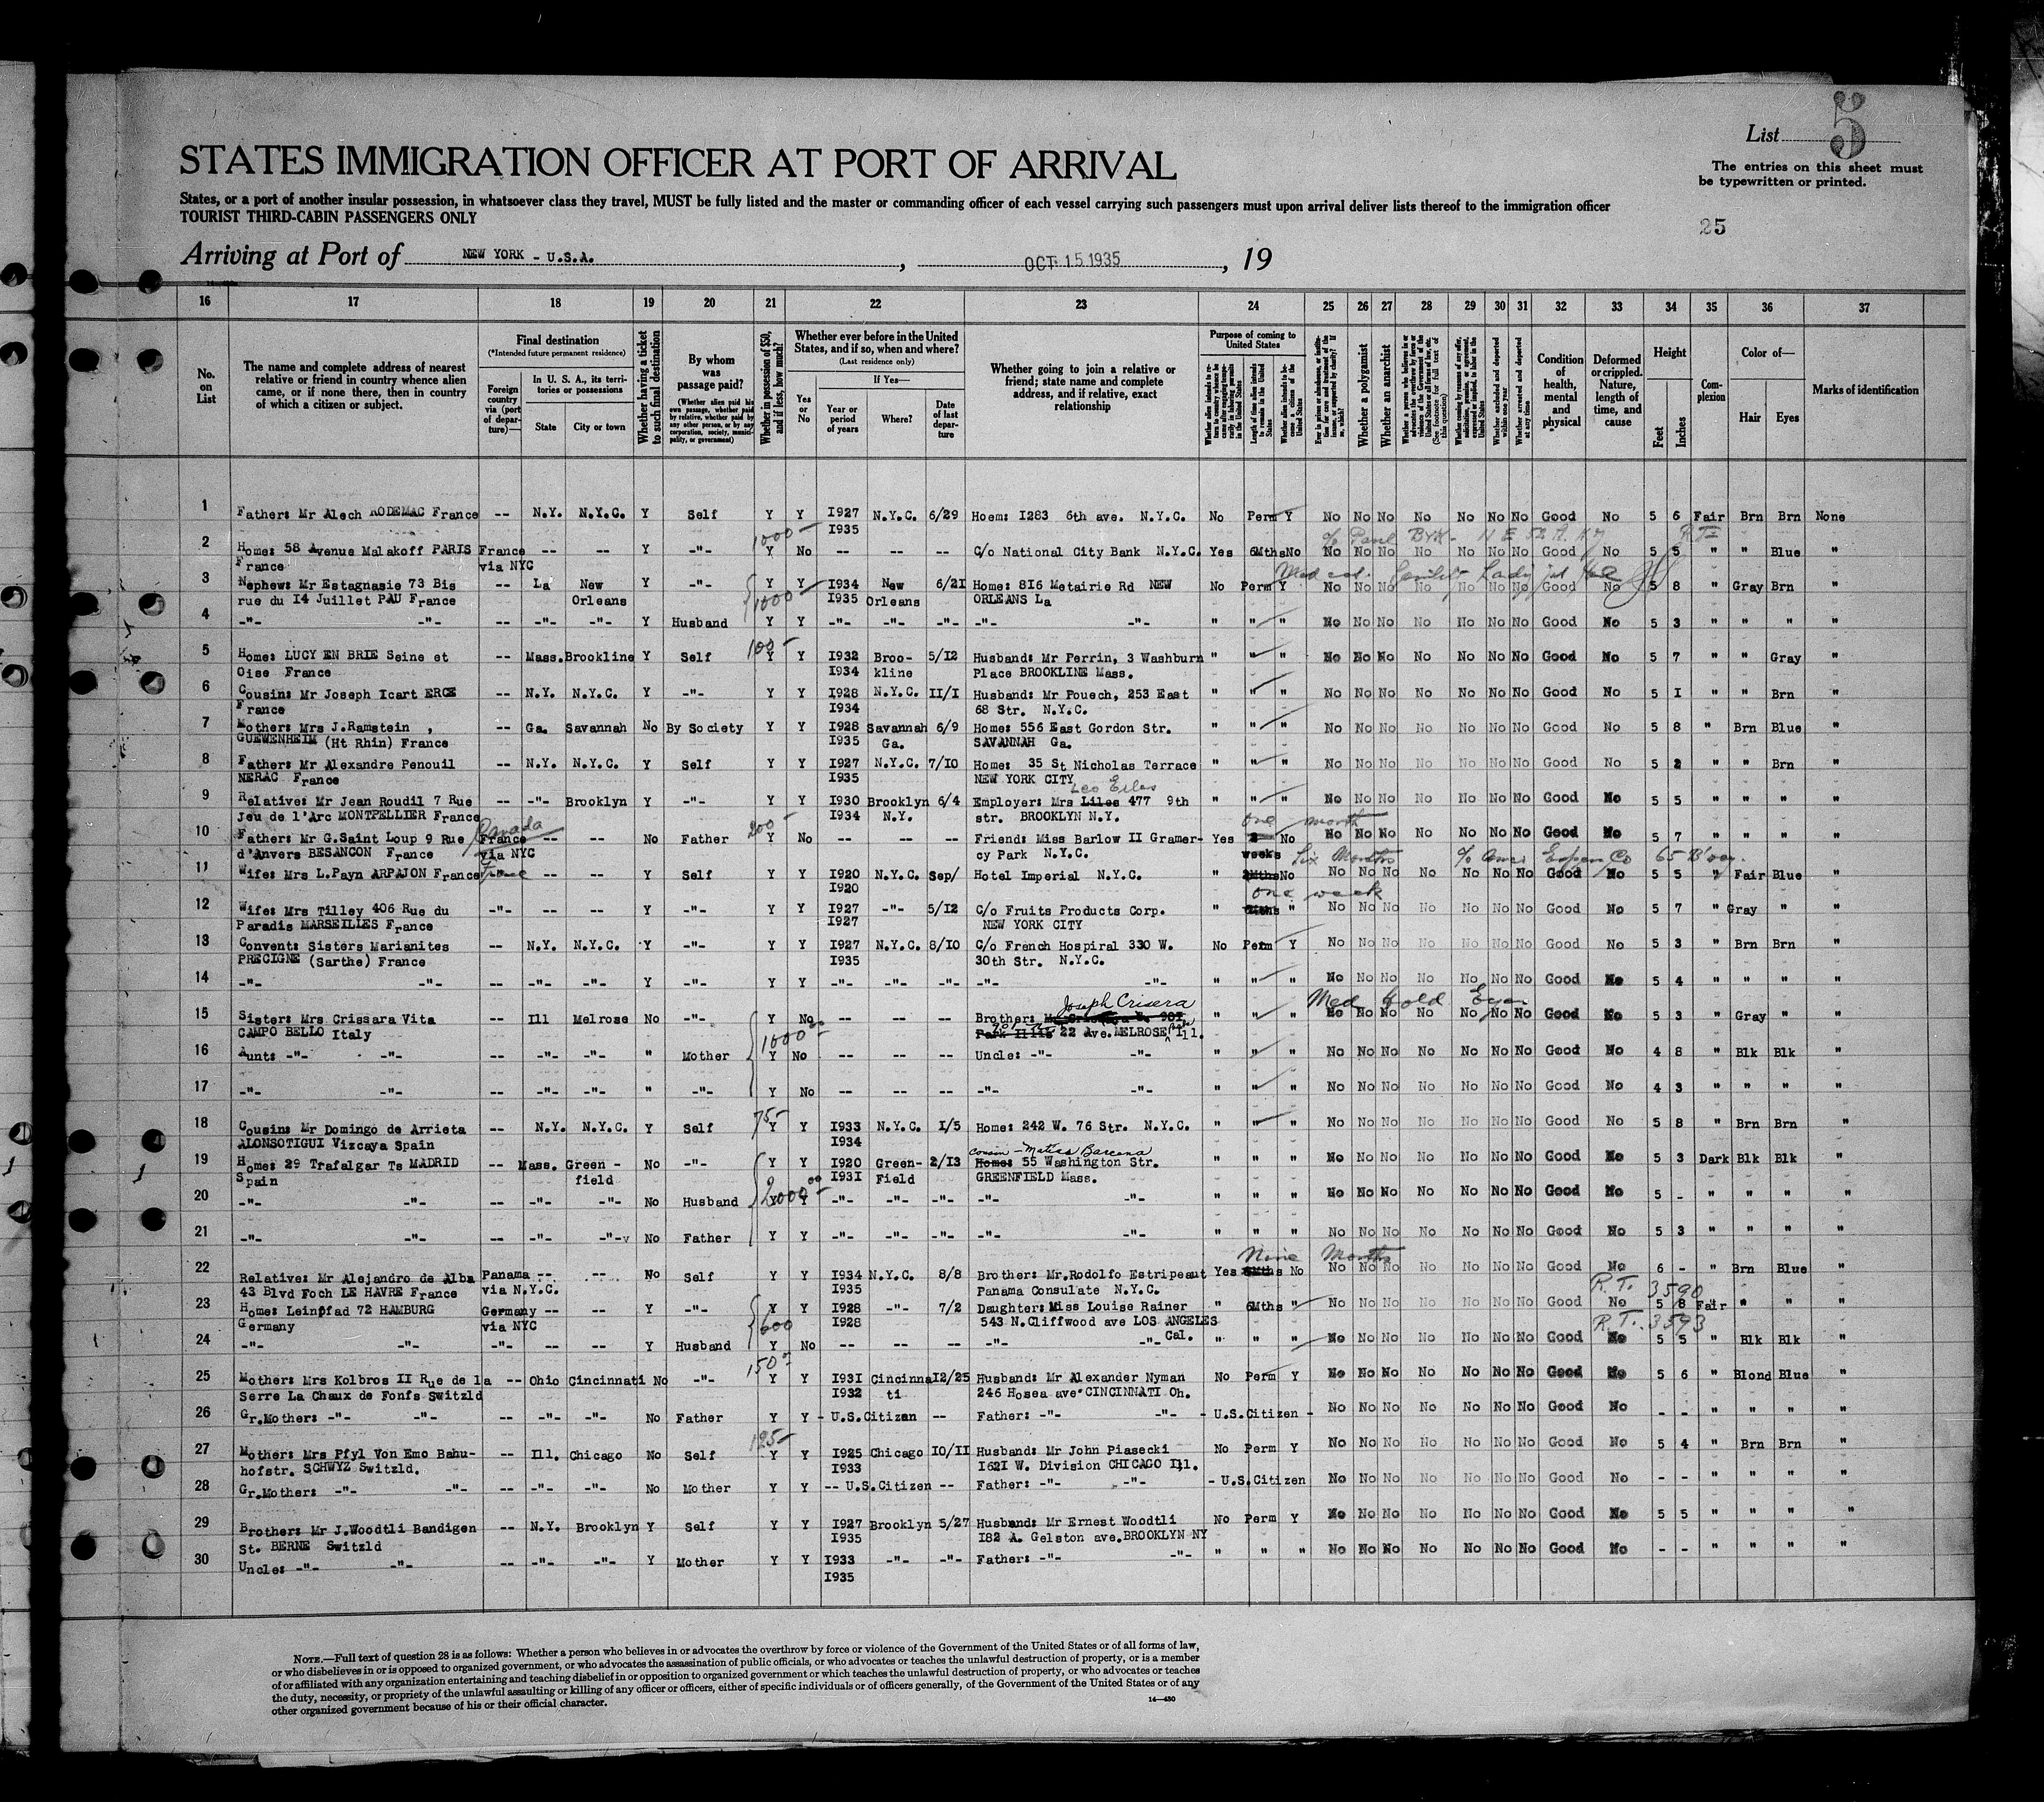 List 5
The entries on this sheet must
be typewritten or printed.
STATES IMMIGRATION OFFICER AT PORT OF ARRIVAL
States, or a port of another insular possession, in whatsoever class they travel, MUST be fully listed and the master or commanding officer of each vessel carrying such passengers must upon arrival deliver lists thereof to the immigration officer
TOURIST THIRD-CABIN PASSENGERS ONLY
25
Arriving at Port of NEW YORK - U.S.A. , OCT 15 1935 , 19
16 17 18 19 20 21 22 23 24 25 26 27 28 29 30 31 32 33 34 35 36 37
No. on List
The name and complete address of nearest
relative or friend in country whence alien
came, or if none there, then in country
of which a citizen or subject.
Final destination
(*Intended future permanent residence)
Foreign country via (port of departure)—
In U. S. A., its territories or possessions
State City or town
Whether having a ticket to such final destination
By whom was passage paid?
(Whether alien paid his own passage, whether paid by relative, whether paid by any other person, or by any corporation, society, municipality, or government)
Whether in possession of $50, and if less, how much?
Whether ever before in the United States, and if so, when and where?
(Last residence only)
Yes or No
If Yes—
Year or period of years Where? Date of last departure
Whether going to join a relative or
friend; state name and complete
address, and if relative, exact
relationship
Purpose of coming to United States
Length of time alien intends to remain in the United States
Whether alien intends to become a citizen of the United States
Whether a polygamist
Whether an anarchist
Whether excluded and deported within one year
Whether arrested and deported at any time
Condition of health, mental and physical
Deformed or crippled. Nature, length of time, and cause
Height
Feet Inches
Complexion
Color of—
Hair Eyes
Marks of identification
1 Father: Mr Alech RODEMAC France -- N.Y. N.Y.C. Y Self Y Y 1927 N.Y.C. 6/29 Hoem: 1283 6th ave. N.Y.C. No Perm Y No No No No No No No Good No 5 6 Fair Brn Brn None
1935
1000-
2 Home: 58 Avenue Malakoff PARIS France -- -- Y -"- Y No -- -- -- C/o National City Bank N.Y.C. Yes 6Mths No No No No No No No No Good No 5 5 " " Blue "
France via NYC
3 Nephew: Mr Estagnasie 73 Bis -- La New Y -"- Y Y 1934 New 6/21 Home: 816 Metairie Rd NEW No Perm Y No No No No No No No Good No 5 8 " Gray Brn "
rue du 14 Juillet PAU France Orleans 1000- 1935 Orleans ORLEANS La
4 -"- -"- -- -"- -"- Y Husband Y Y -"- -"- -"- -"- -"- " " " No No No No No No No Good No 5 3 " " " "
100-
5 Home: LUCY EN BRIE Seine et -- Mass. Brookline Y Self Y Y 1932 Broo- 5/12 Husband: Mr Perrin, 3 Washburn " " " No No No No No No No Good No 5 7 " " Gray "
Oise France 1934 kline Place BROOKLINE Mass.
6 Cousin: Mr Joseph Icart ERCE -- N.Y. N.Y.C. Y -"- Y Y 1928 N.Y.C. 11/1 Husband: Mr Pouech, 253 East " " " No No No No No No No Good No 5 1 " " Brn "
France 1934 68 Str. N.Y.C.
7 Mother: Mrs J.Ramstein , -- Ga. Savannah No By Society Y Y 1928 Savannah 6/9 Home: 556 East Gordon Str. " " " No No No No No No No Good No 5 8 " Brn Blue "
GUEWENHEIM (Ht Rhin) France 1935 Ga. SAVANNAH Ga.
8 Father: Mr Alexandre Penouil -- N.Y. N.Y.C. Y Self Y Y 1927 N.Y.C. 7/10 Home: 35 St Nicholas Terrace " " " No No No No No No No Good No 5 2 " " Brn "
NERAC France 1935 NEW YORK CITY
9 Relative: Mr Jean Roudil 7 Rue -- -"- Brooklyn Y -"- Y Y 1930 Brooklyn 6/4 Employer: Mrs Liles 477 9th " " " No No No No No No No Good No 5 5 " " " "
Jeu de l'Arc MONTPELLIER France 1934 N.Y. str. BROOKLYN N.Y.
Canada 200- one month
10 Father: Mr G.Saint Loup 9 Rue France -- -- No Father Y No -- -- -- Friend: Miss Barlow II Gramer- Yes 2 No No No No No No No No Good No 5 7 " " " "
d'Anvers BESANCON France via NYC cy Park N.Y.C. weeks
Six Months
11 Wife: Mrs L.Payn ARPAJON France -- -- Y Self Y Y 1920 N.Y.C. Sep/ Hotel Imperial N.Y.C. " 2Mths No No No No No No No No Good No 5 5 " Fair Blue "
1920
one week
12 Wife: Mrs Tilley 406 Rue du -"- -- -- Y -"- Y Y 1927 -"- 5/12 C/o Fruits Products Corp. " " No No No No No No No Good No 5 7 " Gray " "
Paradis MARSEILLES France 1927 NEW YORK CITY
13 Convent: Sisters Marianites -- N.Y. N.Y.C. Y -"- Y Y 1927 N.Y.C. 8/10 C/o French Hospiral 330 W. No Perm Y No No No No No No No Good No 5 3 " Brn Brn "
PRECIGNE (Sarthe) France 1935 30th Str. N.Y.C.
14 -"- -"- -- -"- -"- Y -"- Y Y -"- -"- -"- -"- -"- " " " No No No No No No No Good No 5 4 " " " "
Joseph Crisera Med Gold
15 Sister: Mrs Crissara Vita -- Ill Melrose No -"- Y No -- -- -- Brother: " " " No No No No No No No Good No 5 3 " Gray " "
CAMPO BELLO Italy 1000 22 Ave. MELROSE Ill.
16 Aunt: -"- -"- -- -"- -"- " Mother Y No -- -- -- Uncle: -"- -"- " " " No No No No No No No Good No 4 8 " Blk Blk "
17 -"- -"- -- -"- -"- " -"- Y No -- -- -- -"- -"- " " " No No No No No No No Good No 4 3 " " " "
75-
18 Cousin: Mr Domingo de Arrieta -- N.Y. N.Y.C. Y Self Y Y 1933 N.Y.C. 1/5 Home: 242 W. 76 Str. N.Y.C. " " " No No No No No No No Good No 5 8 " Brn Brn "
ALONSOTIGUI Vizcaya Spain 1934
cousin - Matias Barcena
19 Home: 29 Trafalgar Ts MADRID -- Mass. Green- No -"- Y Y 1920 Green- 2/13 Home: 55 Washington Str. " " " No No No No No No No Good No 5 3 Dark Blk Blk "
Spain field 1931 Field GREENFIELD Mass.
2000
20 -"- -"- -- -"- -"- No Husband Y Y -"- -"- -"- -"- -"- " " " No No No No No No No Good No 5 - " " " "
21 -"- -"- -- -"- -"- No Father Y Y -"- -"- -"- -"- -"- " " " No No No No No No No Good No 5 3 " " " "
Nine Months
22 Relative: Mr Alejandro de Alba Panama -- -- No Self Y Y 1934 N.Y.C. 8/8 Brother: Mr.Rodolfo Estripeaut Yes 6Mths No No No No No No No No Good No 6 - " Brn Blue "
43 Blvd Foch LE HAVRE France via N.Y.C. 1935 Panama Consulate N.Y.C.
R.T. 3590
23 Home: Leinpfad 72 HAMBURG Germany -- -- Y -"- Y Y 1928 -"- 7/2 Daughter: Miss Louise Rainer " 6Mths " No No No No No No No Good No 5 8 Fair " " "
Germany via NYC 600 1928 543 N.Cliffwood ave LOS ANGELES
R.T. 3593
24 -"- -"- -"- -- -- Y Husband Y No -- -- -- -"- -"- Cal. " " " No No No No No No No Good No 5 5 " Blk Blk "
150
25 Mother: Mrs Kolbros II Rue de la -- Ohio Cincinnati No -"- Y Y 1931 Cincinna 12/25 Husband: Mr Alexander Nyman No Perm Y No No No No No No No Good No 5 6 " Blond Blue "
Serre La Chaux de Fonfs Switzld 1932 ti 246 Hosea ave CINCINNATI Oh.
26 Gr.Mother: -"- -"- -- -"- -"- No Father Y Y - U.S.Citizan -- Father: -"- -"- - U.S.Citizen - No No No No No No No Good No - - " " " "
125-
27 Mother: Mrs Pfyl Von Emo Bahu- -- Ill. Chicago No Self Y Y 1925 Chicago 10/11 Husband: Mr John Piasecki No Perm Y No No No No No No No Good No 5 4 " Brn Brn "
hofstr. SCHWYZ Switzld. 1933 1621 W. Division CHICAGO Ill.
28 Gr.Mother: -"- -"- -- -"- -"- No Mother Y Y -- U.S.Citizen -- Father: -"- -"- - U.S.Citizen No No No No No No No Good No - - " " " "
29 Brother: Mr J.Woodtli Bandigen -- N.Y. Brooklyn Y Self Y Y 1927 Brooklyn 5/27 Husband: Mr Ernest Woodtli No Perm Y No No No No No No No Good No 5 5 " " " "
St. BERNE Switzld 1935 182 A. Gelston ave. BROOKLYN NY
30 Uncle: -"- -"- -- -"- -"- Y Mother Y Y 1933 -"- -"- Father: -"- -"- " " " No No No No No No No Good No - - " " " "
1935
NOTE.—Full text of question 28 is as follows: Whether a person who believes in or advocates the overthrow by force or violence of the Government of the United States or of all forms of law,
or who disbelieves in or is opposed to organized government, or who advocates the assassination of public officials, or who advocates or teaches the unlawful destruction of property, or is a member
of or affiliated with any organization entertaining and teaching disbelief in or opposition to organized government or which teaches the unlawful destruction of property, or who advocates or teaches
the duty, necessity, or propriety of the unlawful assaulting or killing of any officer or officers, either of specific individuals or of officers generally, of the Government of the United States or of any
other organized government because of his or their official character.
14—430